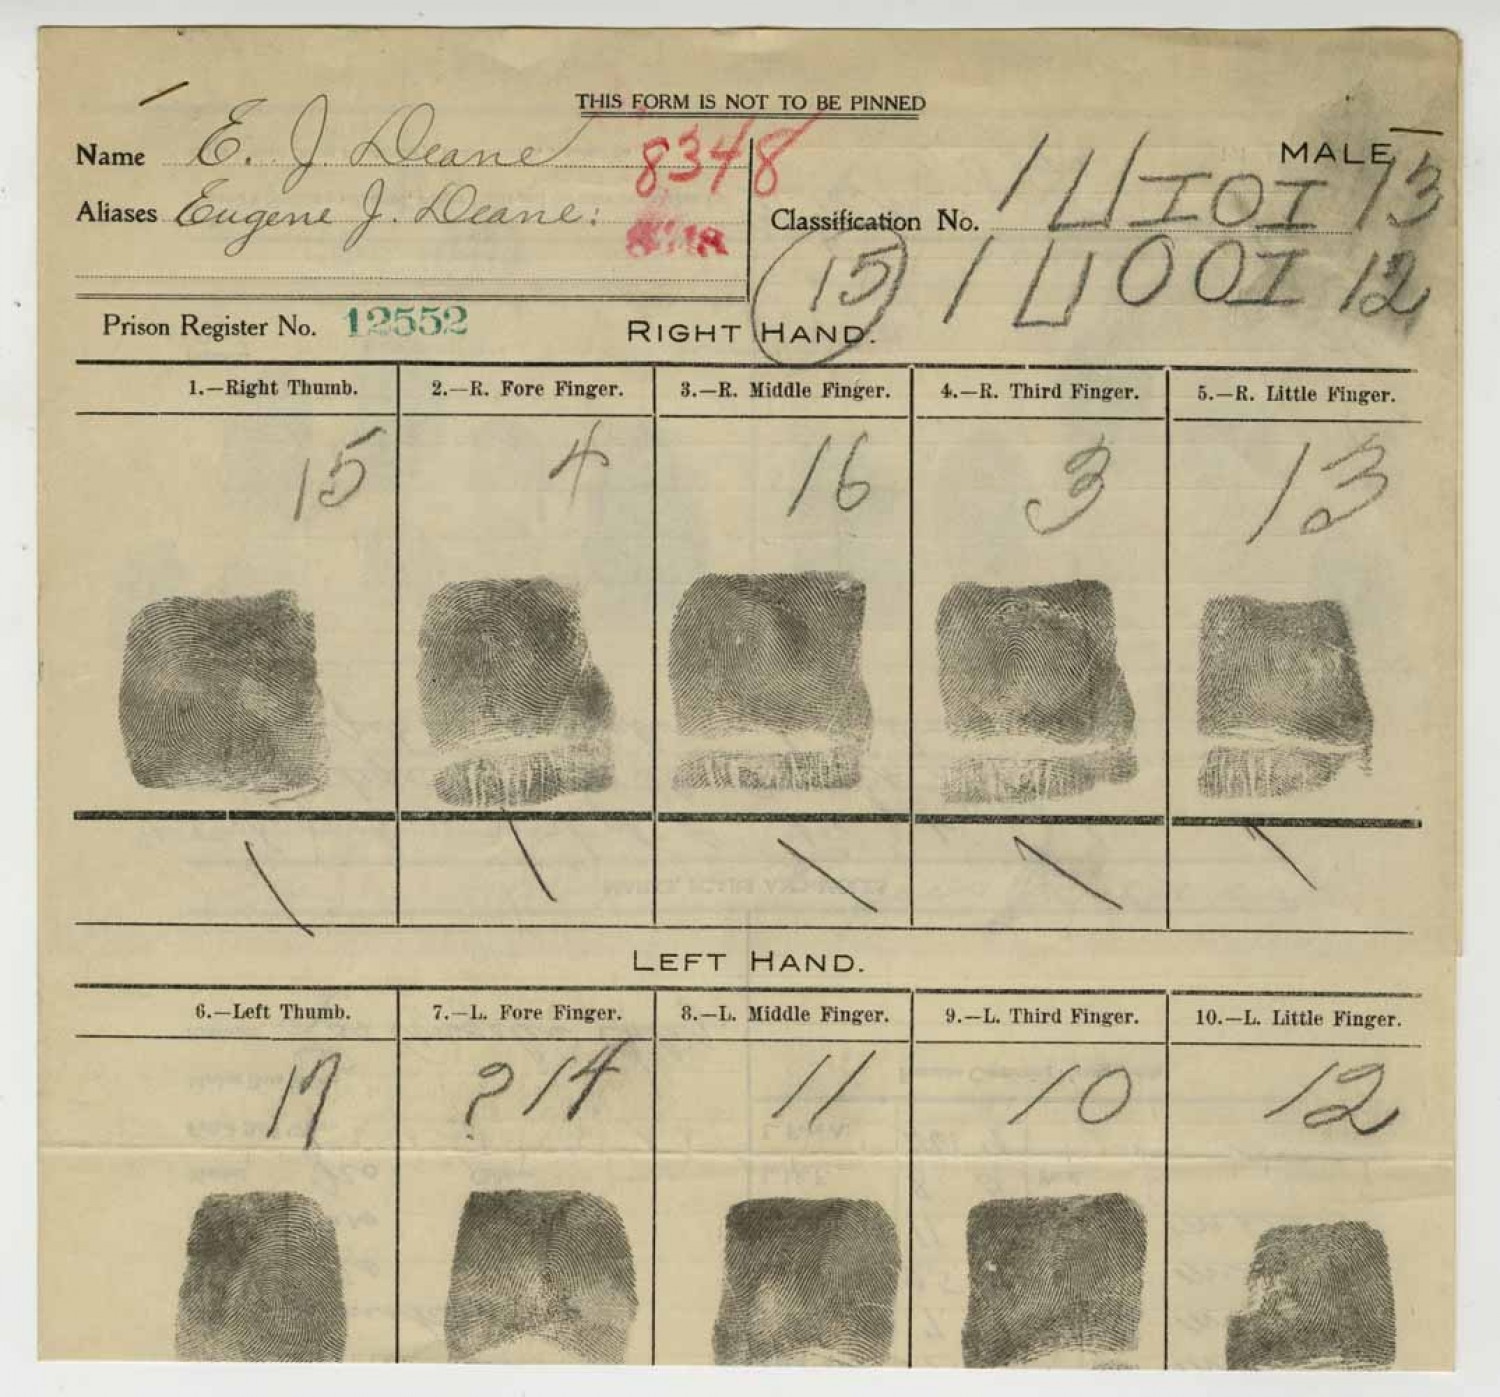 THIS FORM IS NOT TO BE PINNED
MALE
Name E. J. Deane 8348
Aliases Eugene J. Deane:
Classification No. 1 U IOI 13
15 1 U OOI 12
Prison Register No. 12552
RIGHT HAND.
1.—Right Thumb. 2.—R. Fore Finger. 3.—R. Middle Finger. 4.—R. Third Finger. 5.—R. Little Finger.
15 4 16 3 13
LEFT HAND.
6.—Left Thumb. 7.—L. Fore Finger. 8.—L. Middle Finger. 9.—L. Third Finger. 10.—L. Little Finger.
17 ?14 11 10 12